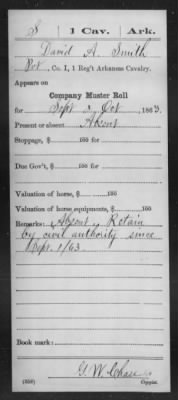 S | 1 Cav. | Ark.
David A. Smith
Pvt, Co. I, 1 Reg't Arkansas Cavalry.
Appears on
Company Muster Roll
for Sept & Oct, 1863.
Present or absent Absent
Stoppage, $ 100 for
Due Gov't, $ 100 for
Valuation of horse, $ 100
Valuation of horse equipments, $ 100
Remarks: Absent, Retain
by civil authority since
Sept. 1/63
Book mark:
G. W. Chase
(858) Copyist.